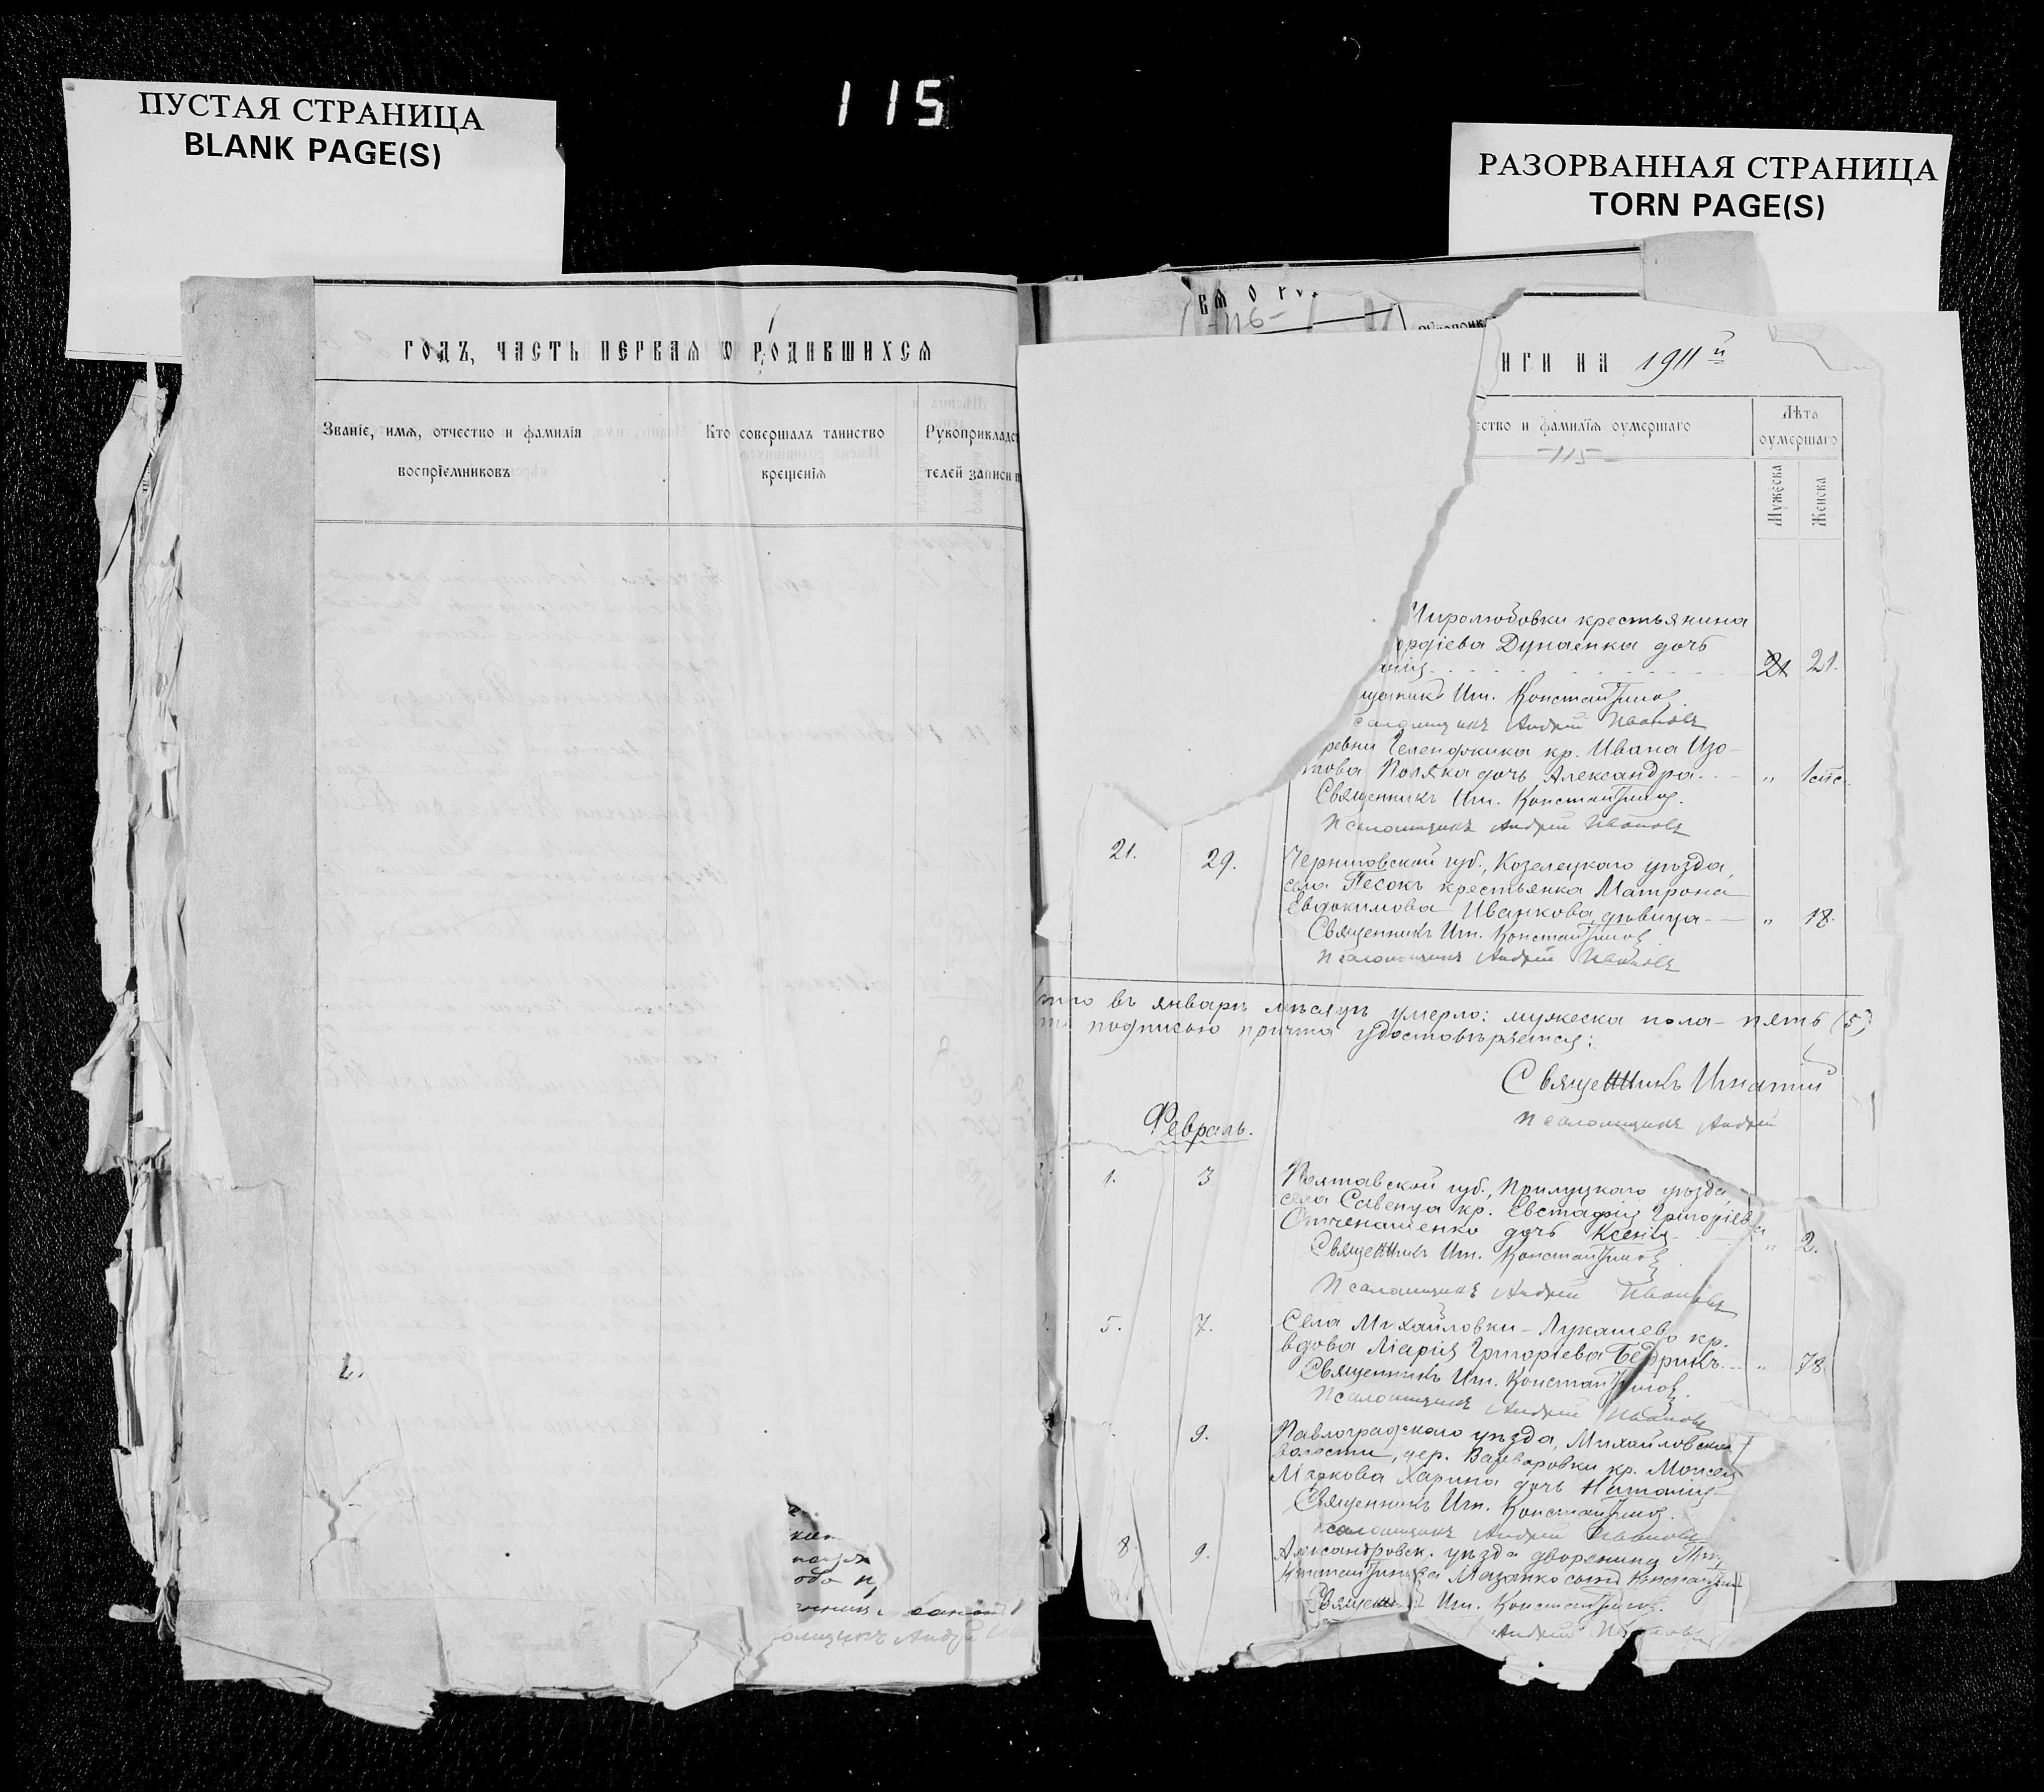 ПУСТАЯ СТРАНИЦА
BLANK PAGE(S)
115
РАЗОРВАННАЯ СТРАНИЦА
TORN PAGE(S)
годъ, часть первая о родившихся
Званіе, имя, отчество и фамилія
воспріемниковъ
Кто совершалъ таинство
крещенія
Рукоприкладст
телей записи п
-116-
иги на 1911й
ество и фамилія оумершаго
-115-
Лѣта
оумершаго
Мужеска
Женска
Миролюбовки крестьянина
ордіева Дунаенка дочь
21 21.
щенникъ Иг. Константинов
саломщикъ Андрей Ивановъ
ревни Геленджика кр. Ивана Изо-
това Поляка дочь Александра „
Священникъ Иг. Константинов.
Псаломщикъ Андрей Ивановъ
21. 29. Черниговской губ., Козелецкаго уѣзда,
села Песокъ крестьянка Матрона
Евдокимова Иванкова, дѣвица — „ 18.
Священникъ Иг. Константинов
Псаломщикъ Андрей Ивановъ
того въ январѣ мѣсяцѣ умерло: мужеска пола – пять (5)
подписью причта удостовѣряется:
Священникъ Игнатій
Псаломщикъ Андрей
Февраль.
1. 3 Полтавской губ., Прилуцкаго уѣзда
села Савенца кр. Евстафія Григоріева
Отченашенко дочь Ксенія „ 2.
Священникъ Иг. Константинов
Псаломщикъ Андрей Ивановъ
5. 7. Села Михайловки-Лукашево кр.
вдова Марія Григоріева Бедрикъ „ 78
Священникъ Иг. Константинов.
Псаломщикъ Андрей Ивановъ
9. Павлоградскаго уѣзда, Михайловской
волости, дер. Варваровки кр. Моисея
Маркова Харина дочь Наталія
Священникъ Иг. Константинов.
саломщикъ Андрей Ивановъ
8. 9. Александровск. уѣзда дворянина
Константинова Мазанко сынъ Константинъ
Священ Иг. Константинов.
Андрей
омщикъ Андрей